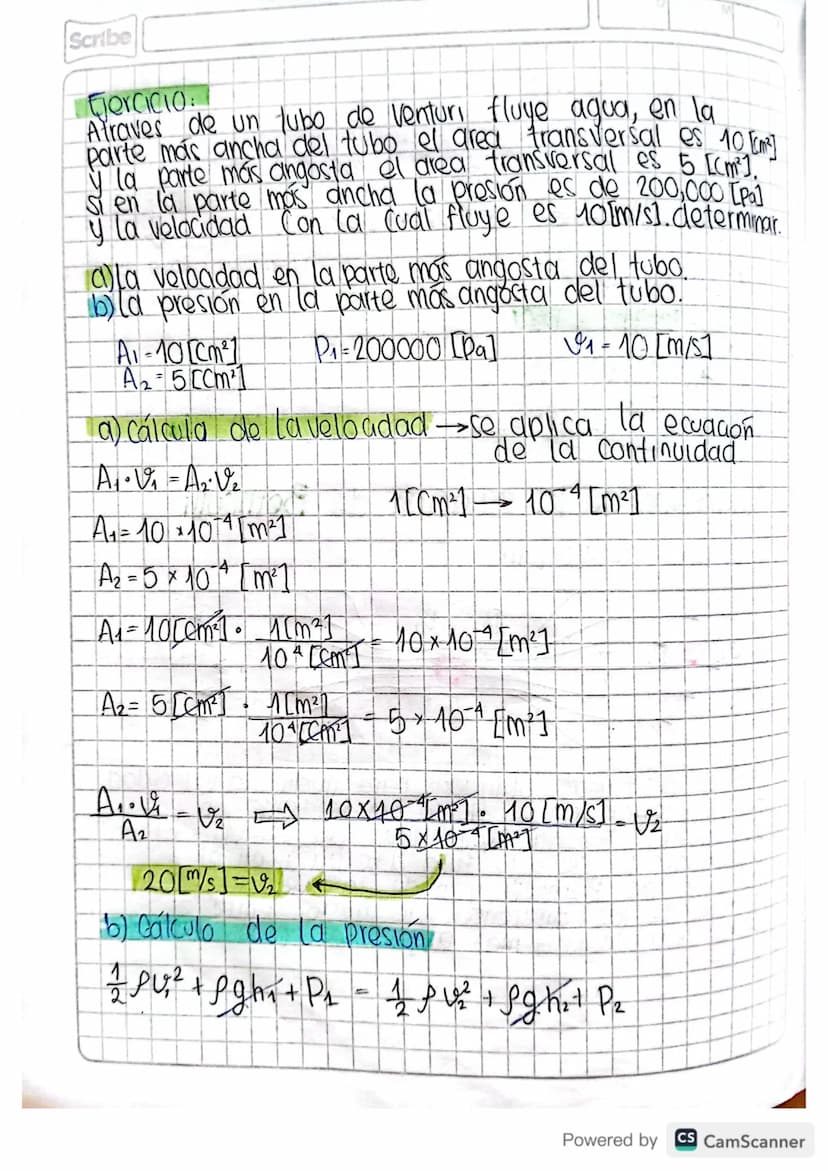 Scribe
Ejercicio:
Atraves de un tubo de venturi fluye agua, en la
parte más ancha del tubo el area transversal es 10 [cm²]
y la parte más angosta el area transversal es 5 [cm²].
si en la parte más ancha la presión es de 200,000 [Pa]
y la velocidad con la cual fluye es 10[m/s]. determinar.
a) la velocidad en la parte más angosta del tubo.
b) la presión en la parte más angosta del tubo.
A₁=10[cm²] P₁=200000 [Pa] v₁=10 [m/s]
A₂=5[cm²]
a) cálcula de la velocidad → se aplica la ecuación
de la continuidad
A₁·v₁=A₂·v₂
1[cm²] → 10⁻⁴ [m²]
A₁=10 ×10⁻⁴ [m²]
A₂=5×10⁻⁴ [m²]
A₁=10[cm²] · 1[m²] / 10⁴[cm²] = 10×10⁻⁴ [m²]
A₂=5[cm²] · 1[m²] / 10⁴[cm²] = 5×10⁻⁴ [m²]
A₁·v₁ / A₂ = v₂ ⇒ 10×10⁻⁴[m²] · 10[m/s] / 5×10⁻⁴[m²] = v₂
20[m/s]=v₂
b) Cálculo de la presión
½ρv₁² + ρgh₁ + P₁ = ½ρv₂² + ρgh₂ + P₂
Powered by CS CamScanner